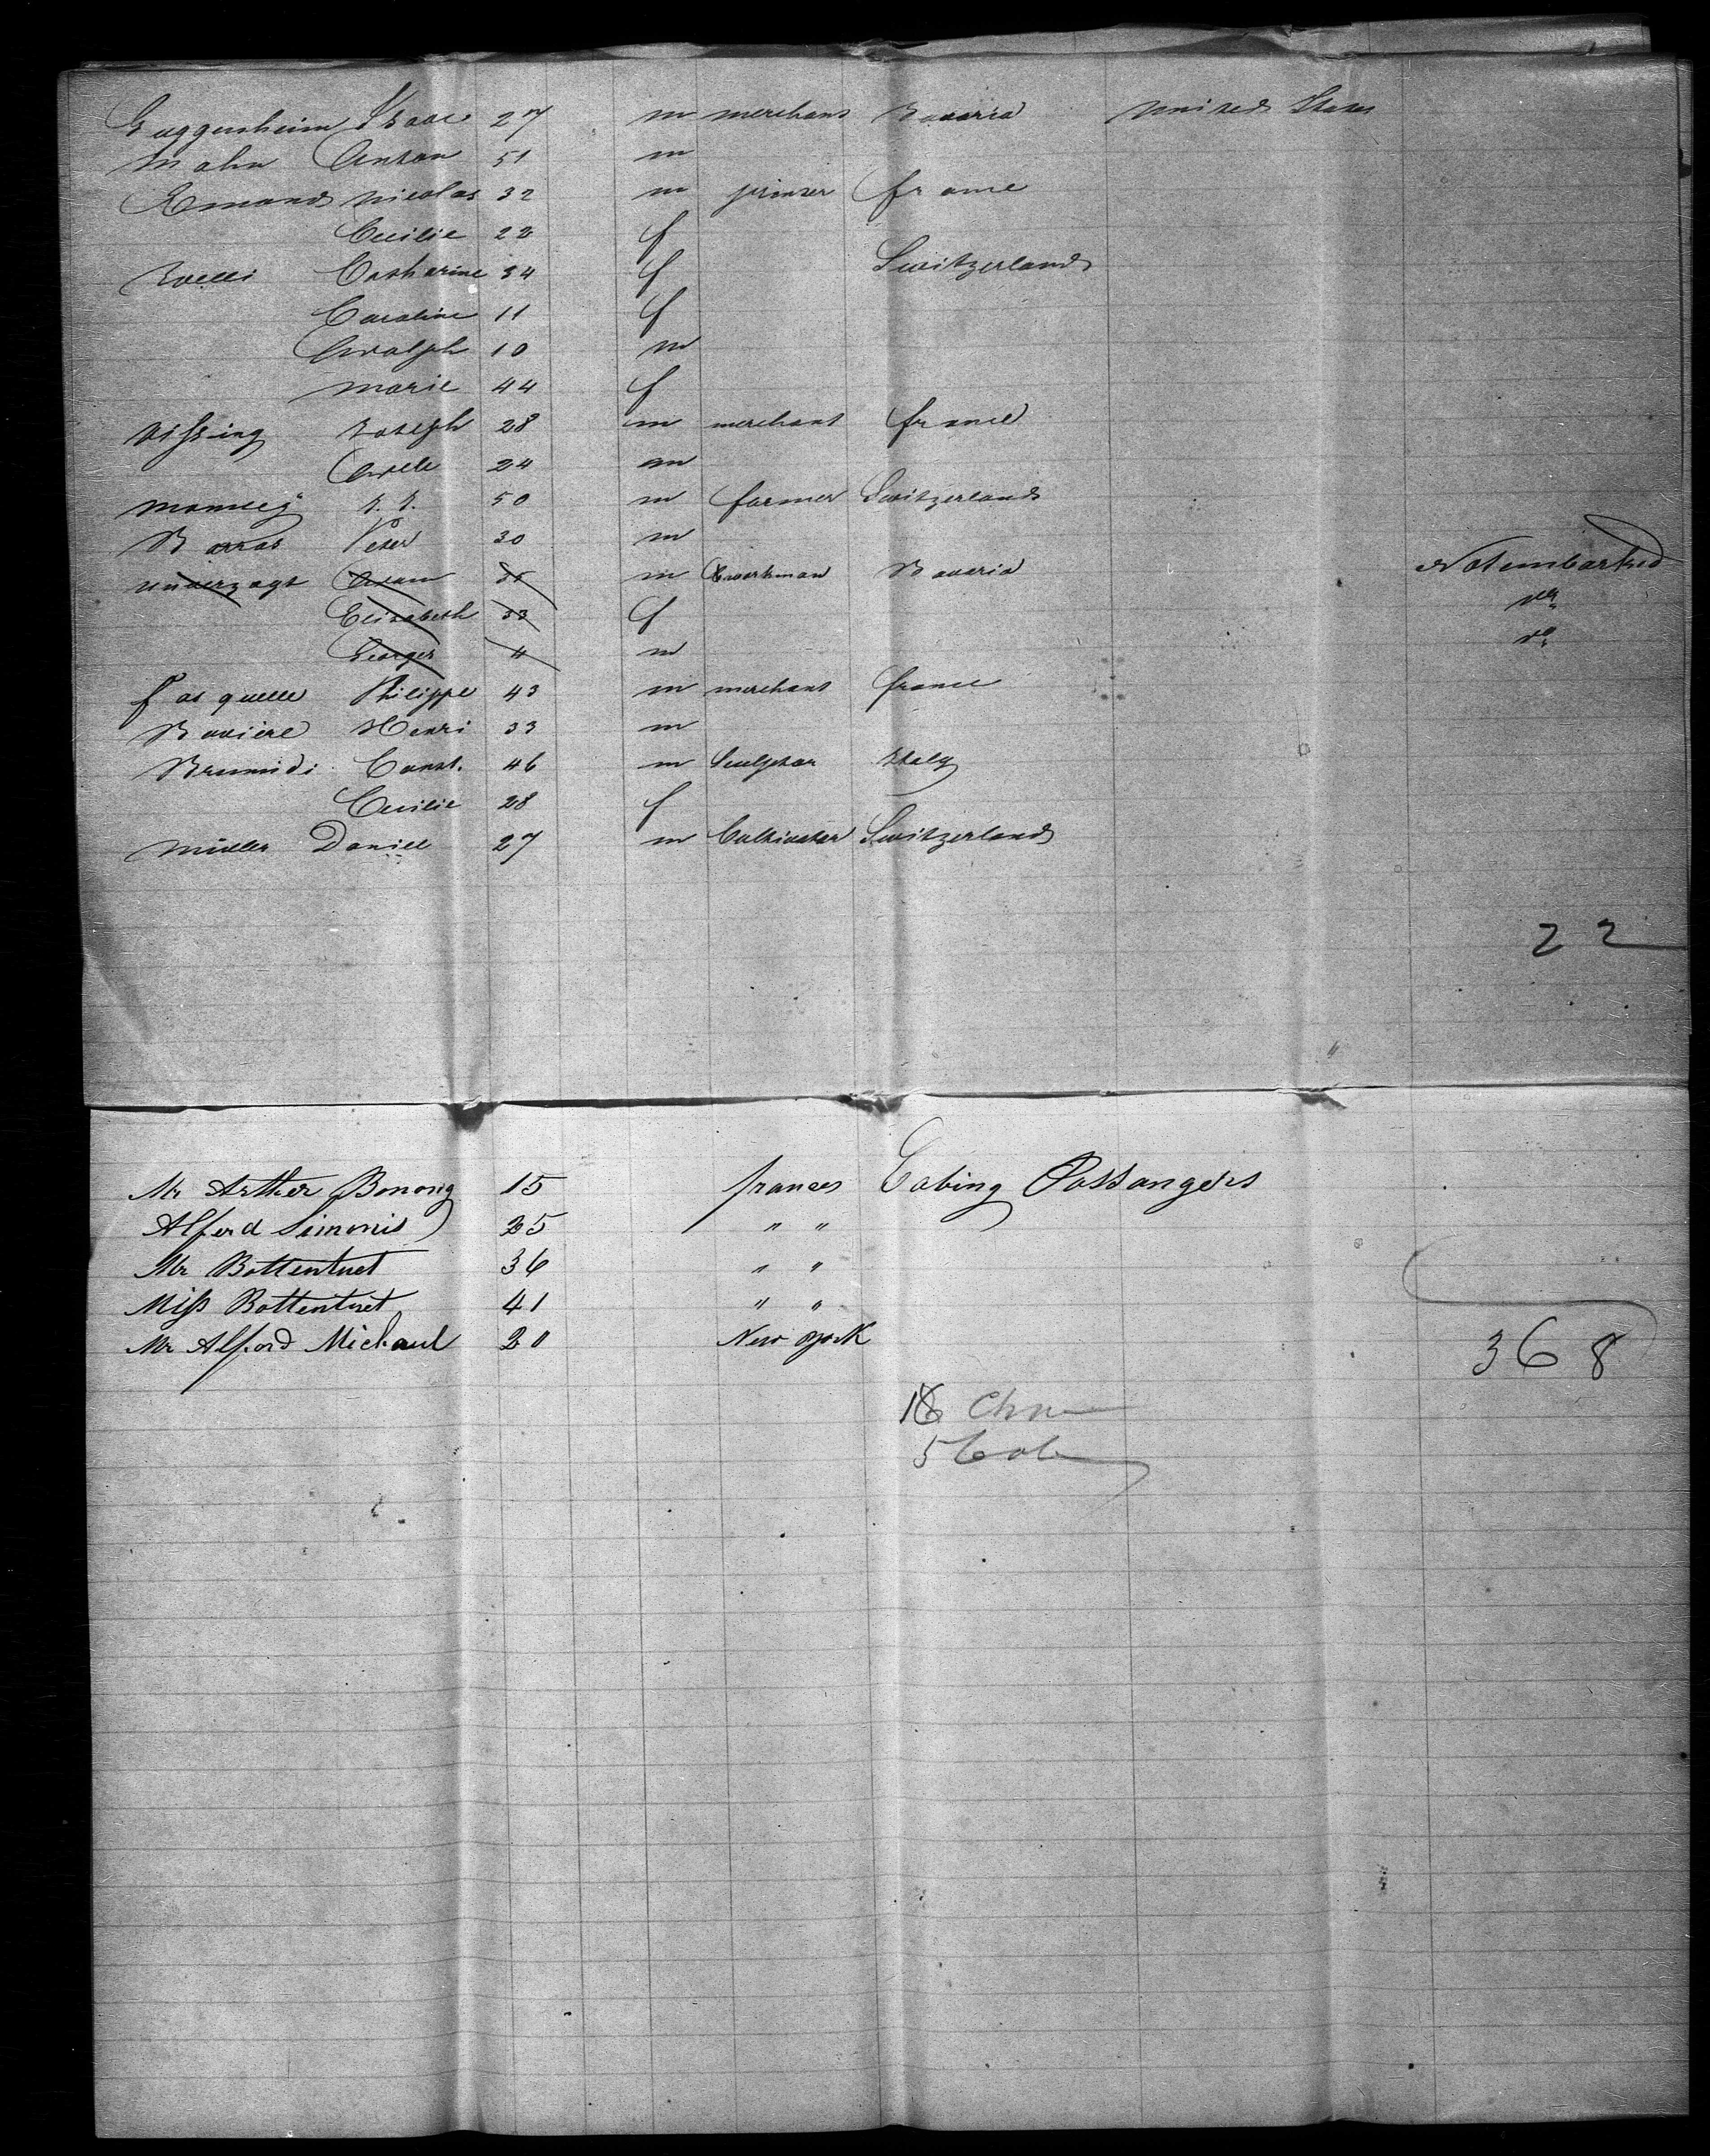 Guggenheim Isaac 27 m merchant Bavaria United States
Mahn Anton 51 m
Edmond Nicolas 32 m printer france
Cecilie 22 f
Catharine 34 f Switzerland
Caroline 11 f
Adolph 10 m
Marie 44 f
Joseph 28 m merchant france
Adele 24 m
J. J. 50 m farmer Switzerland
Barras Peter 30 m
Unverzagt Adam 35 m workman Bavaria Not embarked
Elisabeth 33 f do
Georges 4 m do
Fasquelle Philippe 43 m merchant france
Baviere Henri 33 m
Brumidi Const. 46 m Sculptor Italy
Cecilie 28 f
Müller Daniel 27 m Cultivator Switzerland
22
Mr Arther Bonong 15 frances Cabing Passangers
Alferd Simonis 25 " "
Mr Bottentuet 36 " "
Miss Bottentuet 41 " "
Mr Alford Michaul 20 New york
368
5 Cab